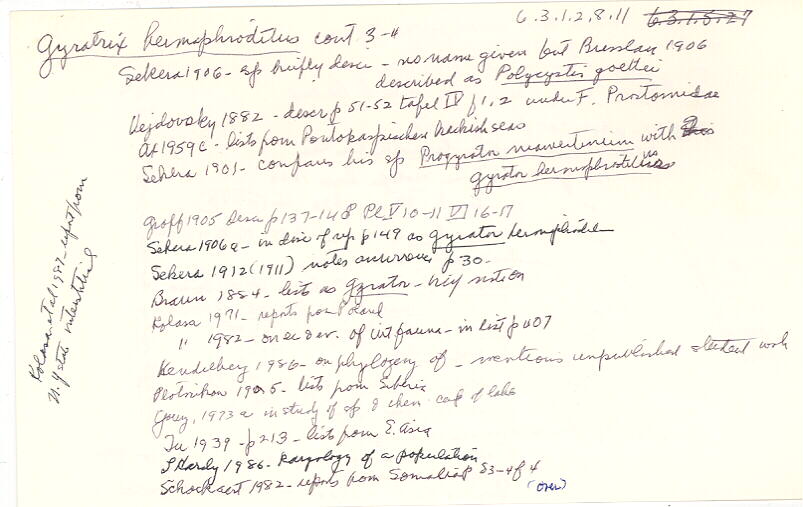 6.3.1.2.8.11 6.3.1.5.27
Gyratrix hermaphroditus cont 3-4
Sekera 1906 - sp briefly descr - no name given but Bresslau 1906
described as Polycystis goettei
Vejdovsky 1882 - descr p 51-52 tafel IV f 1, 2 under F. Prostomidae
Ax 1959c - lists from Pontokaspischen Brackishseas
Sekera 1901 - compares his sp Progyrator with
gyrator hermaphroditus
Graff 1905 Descr p 137-148 Pl V 10-11 VI 16-17
Sekera 1906a - in disc of rep p 149 as gyrator hermaphrodit
Sekera 1912 (1911) notes occurrence p 30 -
Braun 1884 - lists as Gyrator - key notion
Kolasa 1971 - reports from Poland
" 1982 - on ec & ev. of inv fauna - in list p 407
Hendelberg 1986 - on phylogeny of - mentions unpublished student work
Plotnikow 1905 - lists from Siberia
Young, 1973a in study of sp & chem. of lakes
Tu 1939 - p 213 - lists from E. Asia
L'Hardy 1986 - Karyology of a population
Schockaert 1982 - reports from Somalia p 83 - 4 of 4
(over)
Kolasa et al 1987 - report from
N.Y state interstitial